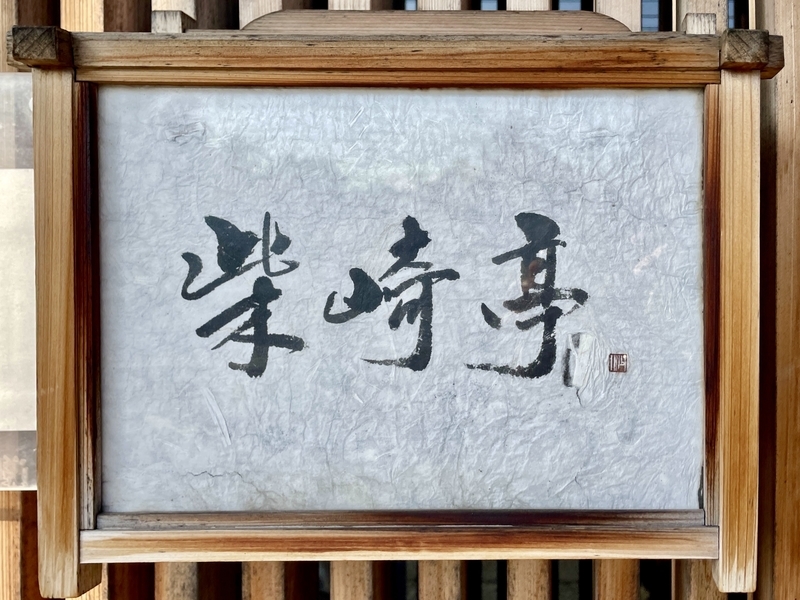 柴崎亭